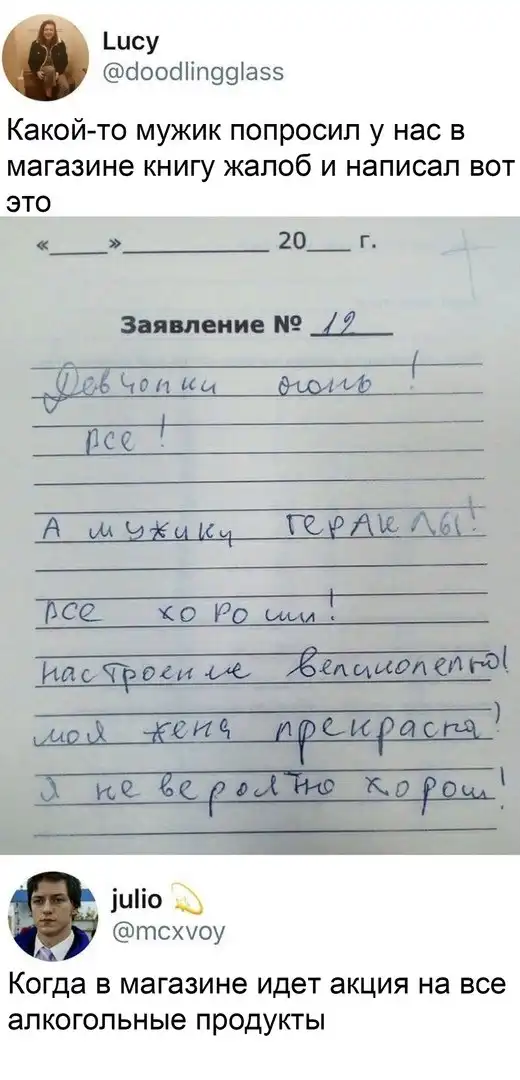 Lucy
@doodlingglass
Какой-то мужик попросил у нас в
магазине книгу жалоб и написал вот
это
«____»____________ 20___ г.
Заявление № 12
Девчонки огонь!
все!
А мужики ГЕРАКЛЫ!
все хороши!
настроение великолепно!
моя жена прекрасна!
Я не вероятно хорош!
julio 💫
@mcxvoy
Когда в магазине идет акция на все
алкогольные продукты